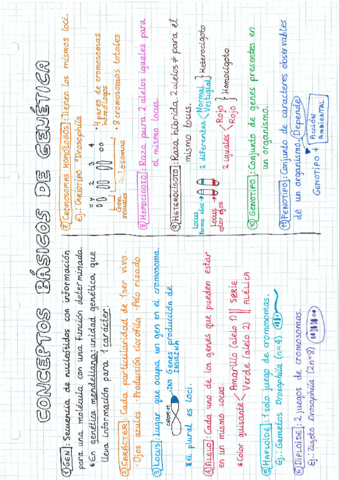 CONCEPTOS BÁSICOS DE GENÉTICA
① GEN: Secuencia de nucleótidos con información
para una molécula con una función determinada.
*En genética mendeliana: unidad genética que
lleva información para 1 carácter.
② CARÁCTER: Cada particularidad de 1 ser vivo.
· Ojos azules · Producción clorofila · Pelo rizado
③ LOCUS: Lugar que ocupa un gen en el cromosoma.
Gen producción de
INSULINA
*El plural es loci.
④ ALELO: Cada uno de los genes que pueden estar
en un mismo locus.
*Color guisante
Amarillo (alelo 1)
Verde (alelo 2)
SERIE
ALÉLICA
⑤ HAPLOIDE: 1 solo juego de cromosomas.
Ej.: Gametos Drosophila (n=4)
⑥ DIPLOIDE: 2 juegos de cromosomas.
Ej.: Zigoto Drosophila (2n=8)
⑦ CROMOSOMAS HOMÓLOGOS: Tienen los mismos loci.
Ej.: Cariotipo Drosophila
X Y 2 3 4
· 4 pares de cromosomas
homólogos
· 8 cromosomas totales
⑧ HOMOCIGOTO: Raza pura 2 alelos iguales para
el mismo locus.
⑨ HETEROCIGOTO: Raza híbrida 2 alelos ≠ para el
mismo locus.
Locus
forma alas
2 diferentes
Normal
Vestigial
Heterocigoto
Locus
color ojos
2 iguales
Rojo
Rojo
Homocigoto
⑩ GENOTIPO: Conjunto de genes presentes en
un organismo.
⑪ FENOTIPO: Conjunto de caracteres observables
de un organismo. Depende
GENOTIPO
ACCIÓN
AMBIENTAL